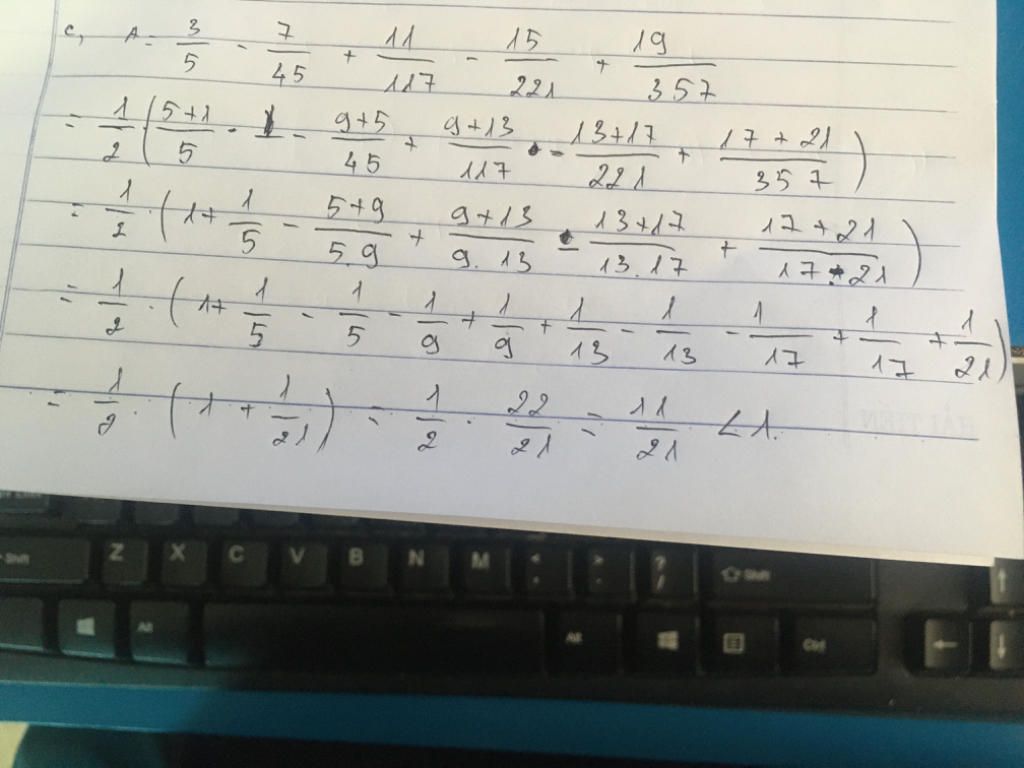 c, A = 3/5 - 7/45 + 11/117 - 15/221 + 19/357
= 1/2 (5+1/5 - 9+5/45 + 9+13/117 - 13+17/221 + 17+21/357)
= 1/2 . (1+ 1/5 - 5+9/5.9 + 9+13/9.13 - 13+17/13.17 + 17+21/17.21)
= 1/2 . (1+ 1/5 - 1/5 - 1/9 + 1/9 + 1/13 - 1/13 - 1/17 + 1/17 + 1/21)
= 1/2 . (1 + 1/21) = 1/2 . 22/21 = 11/21 < 1.
HẢI TIẾN
Shift Z X C V B N M < , > . ? / Shift
Alt Alt Ctrl